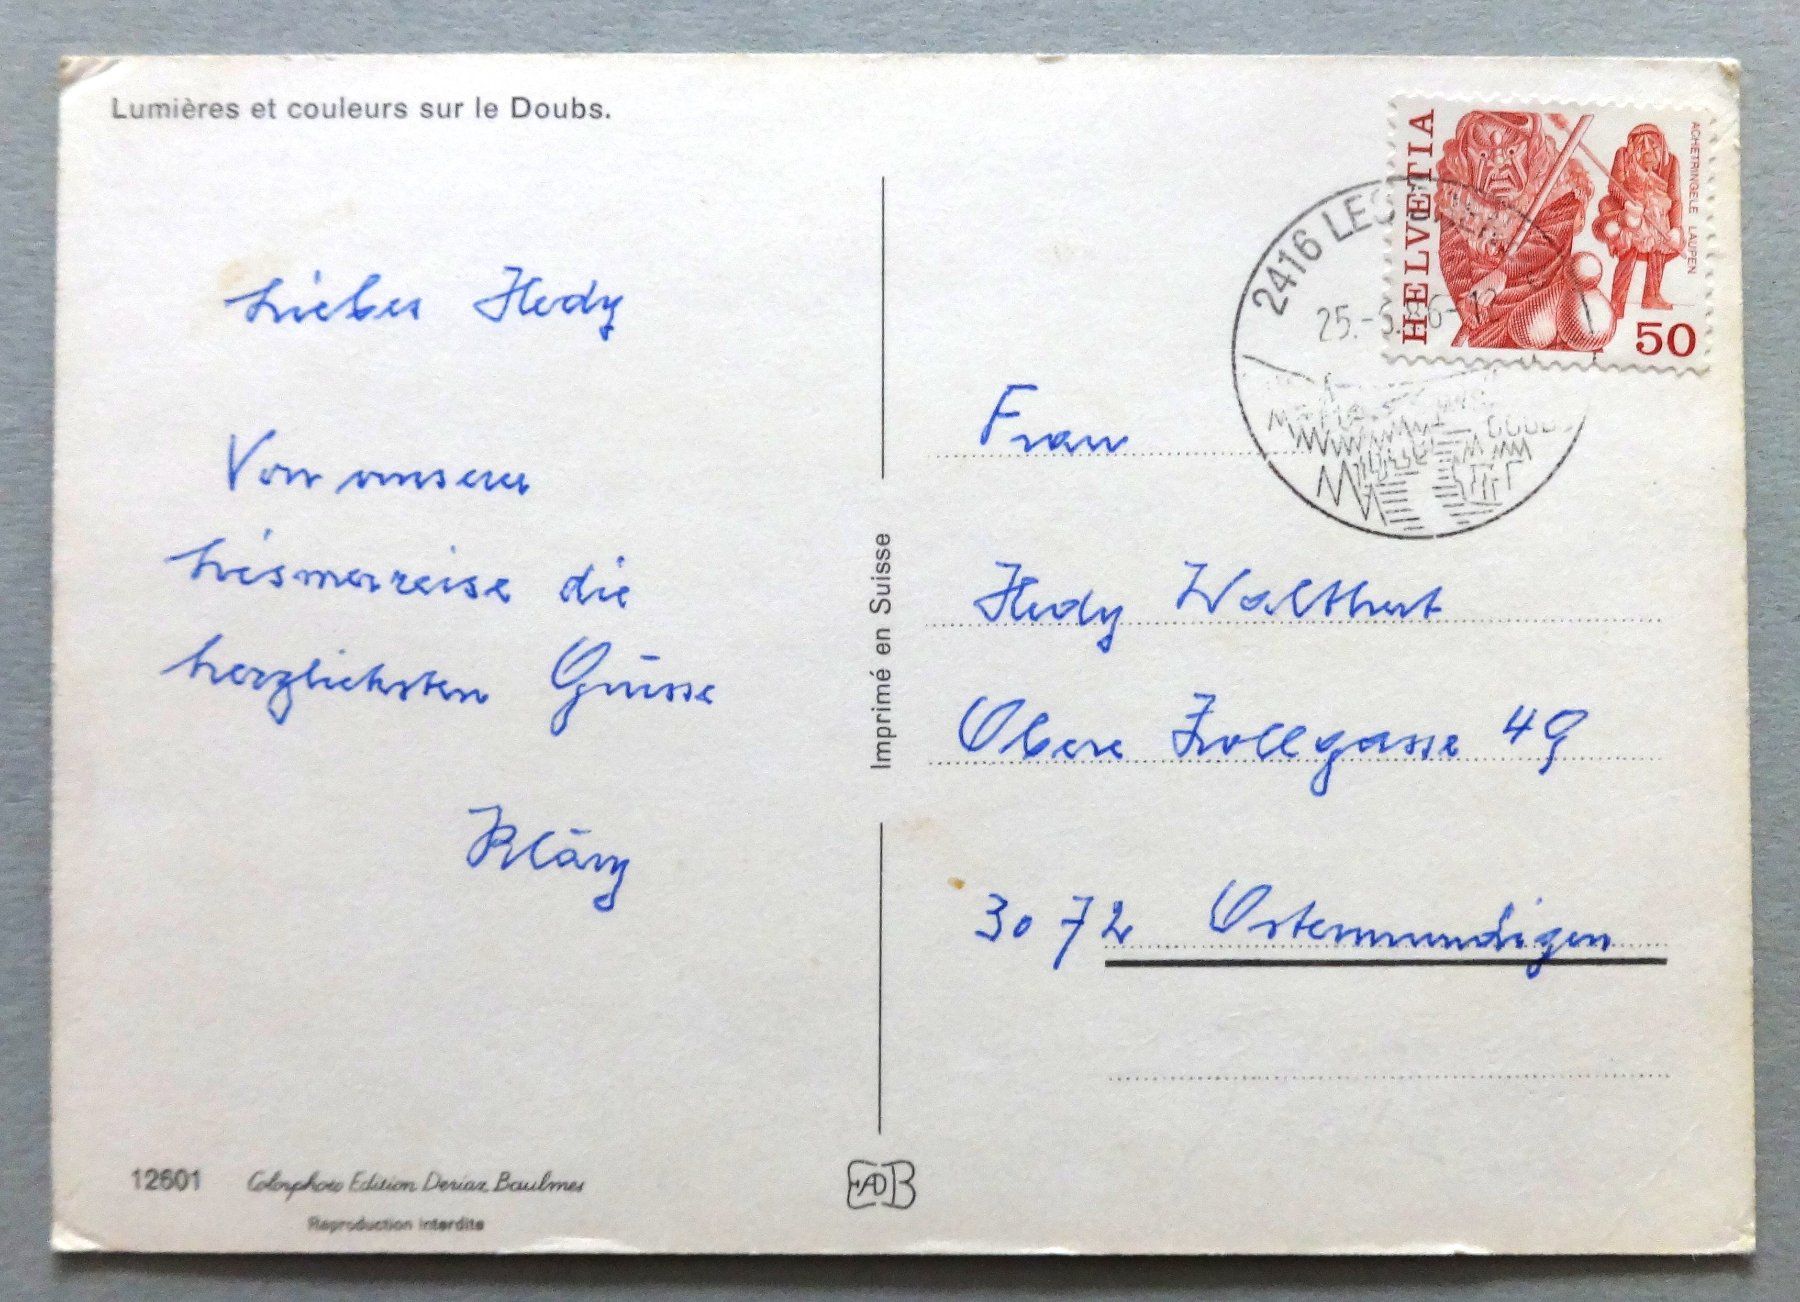 Lumières et couleurs sur le Doubs.
Liebes Hedy
Von unserer
Lismerreise die
herzlichsten Grüsse
Kläry
12601
Colorphoto Edition Deriaz Baulmes
Reproduction interdite
Imprimé en Suisse
EADB
HELVETIA
ACHETRINGELE LAUPEN
50
2416 LES
25.-
Frau
Hedy Walthert
Obere Zollgasse 49
3072 Ostermundigen